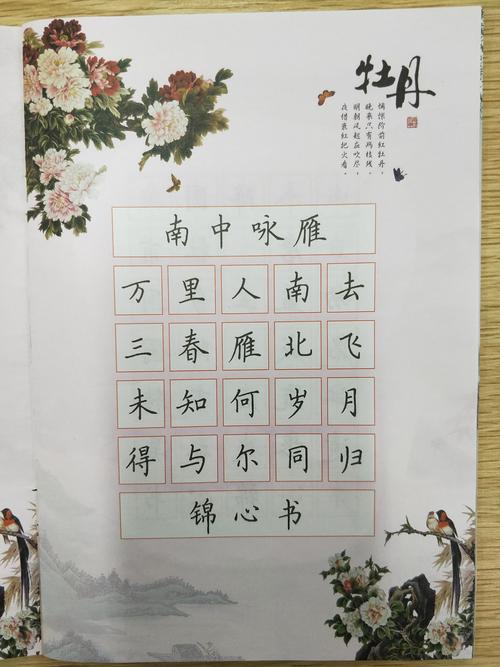 牡丹
惆怅阶前红牡丹，
晚来只有两枝残。
明朝风起应吹尽，
夜惜衰红把火看。
南中咏雁
万里人南去
三春雁北飞
未知何岁月
得与尔同归
锦心书